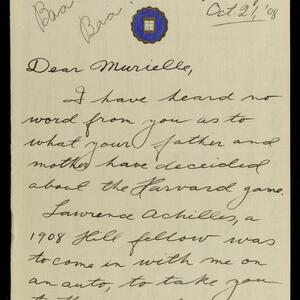 Baa
Baa
Oct. 21, '08
Dear Murielle,
I have heard no
word from you as to
what your father and
mother have decided
about the Harvard game.
Lawrence Achilles, a
1908 Hill fellow was
to come in with me on
an auto, to take you